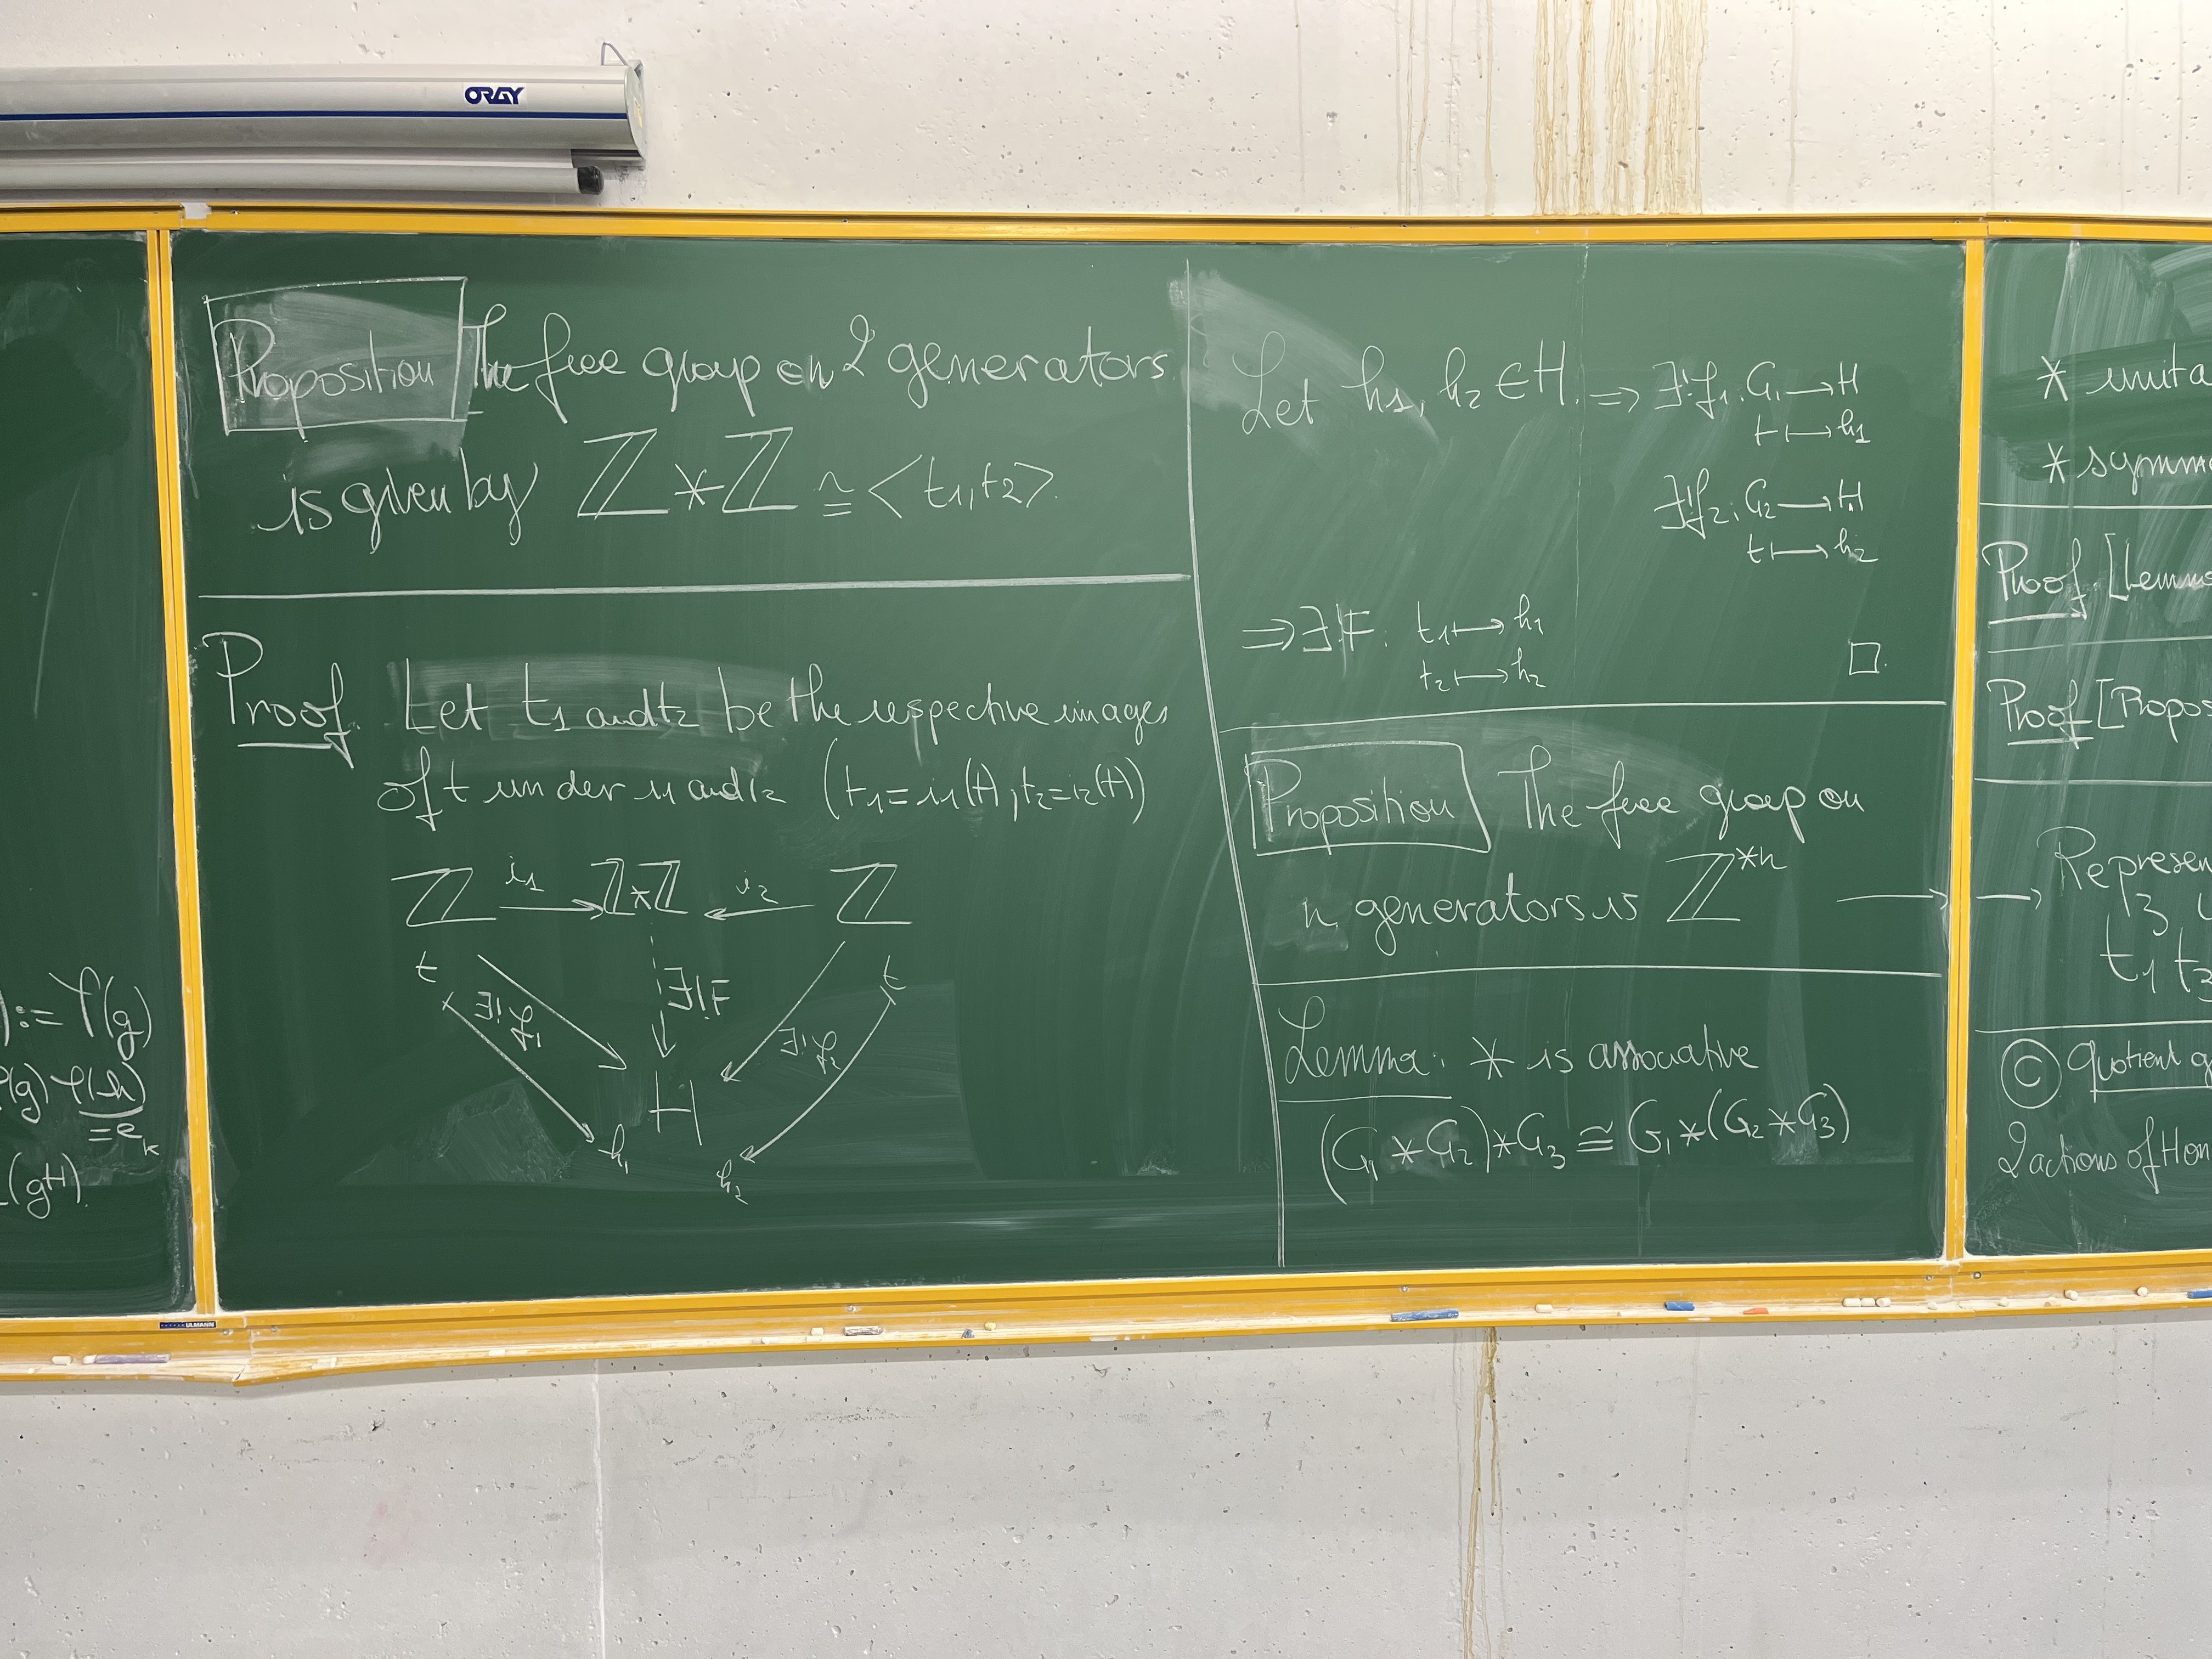 ORAY
):= φ(g)
(g) φ(h)
= e_k
(gH).
Proposition The free group on 2 generators
is given by ℤ * ℤ ≅ <t₁, t₂>.
Proof. Let t₁ and t₂ be the respective images
of t under i₁ and i₂ (t₁ = i₁(t), t₂ = i₂(t))
ℤ i₁→ ℤ*ℤ ←i₂ ℤ
t ∃!f₁ ∃!F ∃!f₂ t
H
h₁ h₂
Let h₁, h₂ ∈ H. ⇒ ∃!f₁: G₁ → H
t ↦ h₁
∃!f₂: G₂ → H
t ↦ h₂
⇒ ∃!F: t₁ ↦ h₁
t₂ ↦ h₂ □.
Proposition The free group on
n generators is ℤ^{*n} →
Lemma: * is associative
(G₁ * G₂) * G₃ ≅ G₁ * (G₂ * G₃)
* unita
* symm
Proof. [Lemm
Proof [Propos
→ Represen
t₁ t₃
Ⓒ Quotient g
2 actions of Hon
ULMANN